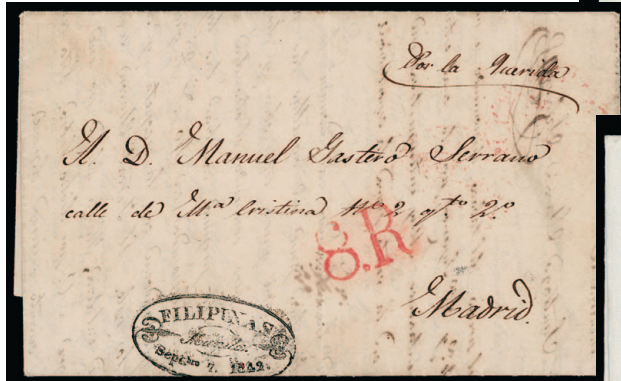 Por la Querida
A. D. Manuel Gastero Serrano
calle de M.ª Cristina Nº 2 qtº 2º
8.R
Madrid.
FILIPINAS
Manila.
Septbre 7. 1842.